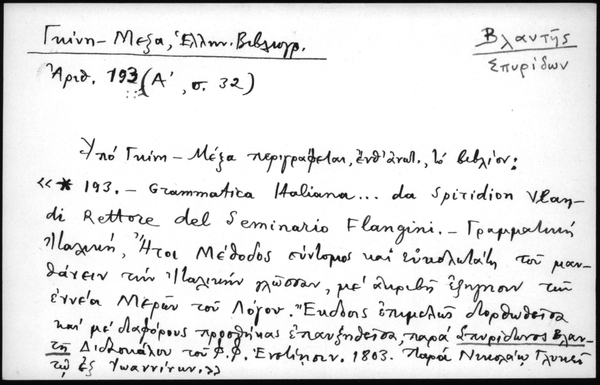 Γκίνη – Μέξα, Ἑλλην. Βιβλιογρ.
Βλαντῆς
Σπυρίδων
Ἀριθ. 193 (Α΄, σ. 32)
Ὑπό Γκίνη – Μέξα περιγράφεται, ἔνθ' ἀνωτ., τό βιβλίον:
«* 193. – Grammatica Italiana... da Spiridion Vlan-
di Rettore del Seminario Flangini. – Γραμματική
Ἰταλική, Ἤτοι Μέθοδος σύντομος καί εὐκολωτάτη τοῦ μαν-
θάνειν τήν Ἰταλικήν γλῶσσαν, μέ ἀκριβῆ ἐξήγησιν τῶν
ἐννέα Μερῶν τοῦ Λόγου. Ἔκδοσις ἐπιμελῶς διορθωθεῖσα
καί μέ διαφόρους προσθήκας ἐπαυξηθεῖσα, παρά Σπυρίδωνος Βλαν-
τῆ Διδασκάλου τοῦ Φ.Φ. Ἑνετίησιν. 1803. Παρά Νικολάῳ Γλυκεῖ
τῷ ἐξ Ἰωαννίνων.»